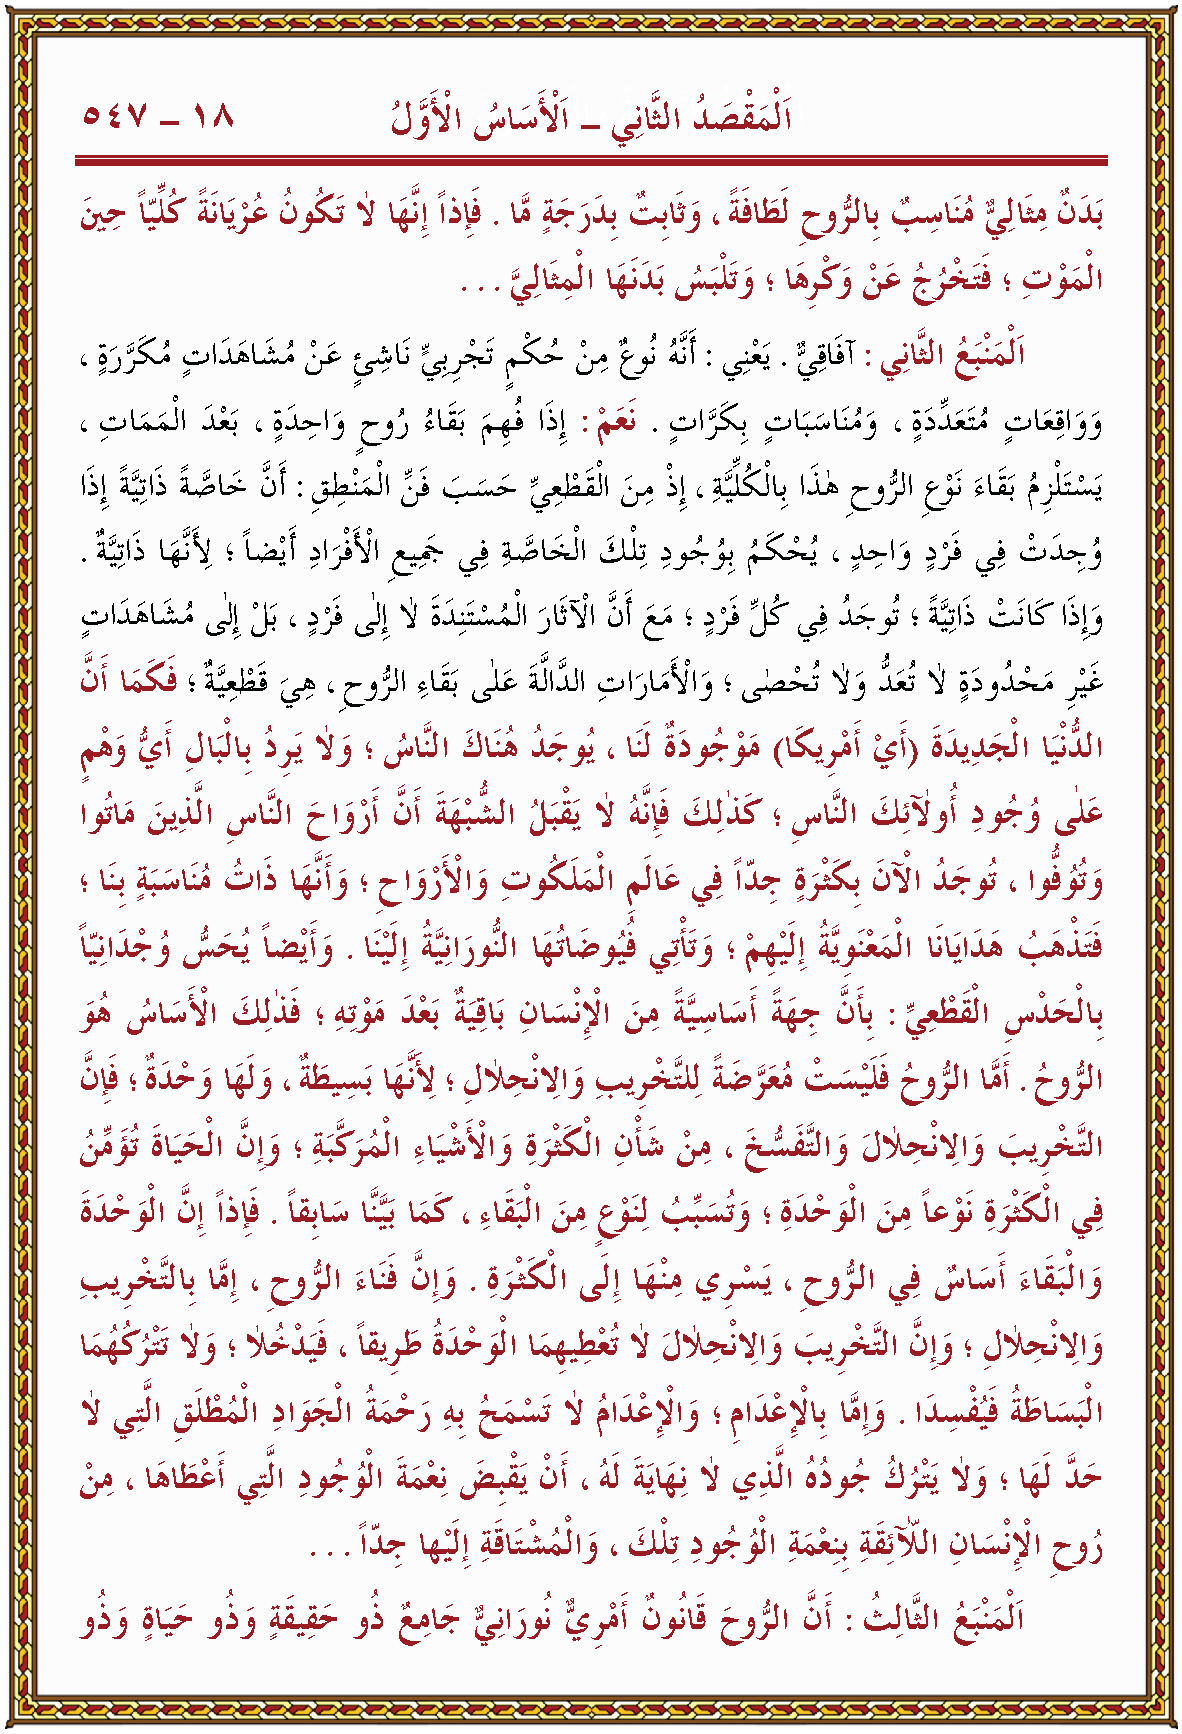 اَلْمَقْصَدُ الثَّانِي – اَلْأَسَاسُ الْأَوَّلُ ١٨ – ٥٤٧
بَدَنٌ مِثَالِيٌّ مُنَاسِبٌ بِالرُّوحِ لَطَافَةً ، وَثَابِتٌ بِدَرَجَةٍ مَّا . فَإِذاً إِنَّهَا لَا تَكُونُ عُرْيَانَةً كُلِّيّاً حِينَ
الْمَوْتِ ؛ فَتَخْرُجُ عَنْ وَكْرِهَا ؛ وَتَلْبَسُ بَدَنَهَا الْمِثَالِيَّ . . .
اَلْمَنْبَعُ الثَّانِي : آفَاقِيٌّ . يَعْنِي : أَنَّهُ نُوعٌ مِنْ حُكْمٍ تَجْرِبِيٍّ نَاشِئٍ عَنْ مُشَاهَدَاتٍ مُكَرَّرَةٍ ،
وَوَاقِعَاتٍ مُتَعَدِّدَةٍ ، وَمُنَاسَبَاتٍ بِكَرَّاتٍ . نَعَمْ : إِذَا فُهِمَ بَقَاءُ رُوحٍ وَاحِدَةٍ ، بَعْدَ الْمَمَاتِ ،
يَسْتَلْزِمُ بَقَاءَ نَوْعِ الرُّوحِ هٰذَا بِالْكُلِّيَّةِ ، إِذْ مِنَ الْقَطْعِيِّ حَسَبَ فَنِّ الْمَنْطِقِ : أَنَّ خَاصَّةً ذَاتِيَّةً إِذَا
وُجِدَتْ فِي فَرْدٍ وَاحِدٍ ، يُحْكَمُ بِوُجُودِ تِلْكَ الْخَاصَّةِ فِي جَمِيعِ الْأَفْرَادِ أَيْضاً ؛ لِأَنَّهَا ذَاتِيَّةٌ .
وَإِذَا كَانَتْ ذَاتِيَّةً ؛ تُوجَدُ فِي كُلِّ فَرْدٍ ؛ مَعَ أَنَّ الْآثَارَ الْمُسْتَنِدَةَ لَا إِلٰى فَرْدٍ ، بَلْ إِلٰى مُشَاهَدَاتٍ
غَيْرِ مَحْدُودَةٍ لَا تُعَدُّ وَلَا تُحْصٰى ؛ وَالْأَمَارَاتِ الدَّالَّةَ عَلٰى بَقَاءِ الرُّوحِ ، هِيَ قَطْعِيَّةٌ ؛ فَكَمَا أَنَّ
الدُّنْيَا الْجَدِيدَةَ (أَيْ أَمْرِيكَا) مَوْجُودَةٌ لَنَا ، يُوجَدُ هُنَاكَ النَّاسُ ؛ وَلَا يَرِدُ بِالْبَالِ أَيُّ وَهْمٍ
عَلٰى وُجُودِ أُولٰۤئِكَ النَّاسِ ؛ كَذٰلِكَ فَإِنَّهُ لَا يَقْبَلُ الشُّبْهَةَ أَنَّ أَرْوَاحَ النَّاسِ الَّذِينَ مَاتُوا
وَتُوُفُّوا ، تُوجَدُ الْآنَ بِكَثْرَةٍ جِدّاً فِي عَالَمِ الْمَلَكُوتِ وَالْأَرْوَاحِ ؛ وَأَنَّهَا ذَاتُ مُنَاسَبَةٍ بِنَا ؛
فَتَذْهَبُ هَدَايَانَا الْمَعْنَوِيَّةُ إِلَيْهِمْ ؛ وَتَأْتِي فُيُوضَاتُهَا النُّورَانِيَّةُ إِلَيْنَا . وَأَيْضاً يُحَسُّ وُجْدَانِيّاً
بِالْحَدْسِ الْقَطْعِيِّ : بِأَنَّ جِهَةً أَسَاسِيَّةً مِنَ الْإِنْسَانِ بَاقِيَةٌ بَعْدَ مَوْتِهِ ؛ فَذٰلِكَ الْأَسَاسُ هُوَ
الرُّوحُ . أَمَّا الرُّوحُ فَلَيْسَتْ مُعَرَّضَةً لِلتَّخْرِيبِ وَالِانْحِلَالِ ؛ لِأَنَّهَا بَسِيطَةٌ ، وَلَهَا وَحْدَةٌ ؛ فَإِنَّ
التَّخْرِيبَ وَالِانْحِلَالَ وَالتَّفَسُّخَ ، مِنْ شَأْنِ الْكَثْرَةِ وَالْأَشْيَاءِ الْمُرَكَّبَةِ ؛ وَإِنَّ الْحَيَاةَ تُؤَمِّنُ
فِي الْكَثْرَةِ نَوْعاً مِنَ الْوَحْدَةِ ؛ وَتُسَبِّبُ لِنَوْعٍ مِنَ الْبَقَاءِ ، كَمَا بَيَّنَّا سَابِقاً . فَإِذاً إِنَّ الْوَحْدَةَ
وَالْبَقَاءَ أَسَاسٌ فِي الرُّوحِ ، يَسْرِي مِنْهَا إِلَى الْكَثْرَةِ . وَإِنَّ فَنَاءَ الرُّوحِ ، إِمَّا بِالتَّخْرِيبِ
وَالِانْحِلَالِ ؛ وَإِنَّ التَّخْرِيبَ وَالِانْحِلَالَ لَا تُعْطِيهِمَا الْوَحْدَةُ طَرِيقاً ، فَيَدْخُلَا ؛ وَلَا تَتْرُكُهُمَا
الْبَسَاطَةُ فَيُفْسِدَا . وَإِمَّا بِالْإِعْدَامِ ؛ وَالْإِعْدَامُ لَا تَسْمَحُ بِهِ رَحْمَةُ الْجَوَادِ الْمُطْلَقِ الَّتِي لَا
حَدَّ لَهَا ؛ وَلَا يَتْرُكُ جُودُهُ الَّذِي لَا نِهَايَةَ لَهُ ، أَنْ يَقْبِضَ نِعْمَةَ الْوُجُودِ الَّتِي أَعْطَاهَا ، مِنْ
رُوحِ الْإِنْسَانِ اللَّۤائِقَةِ بِنِعْمَةِ الْوُجُودِ تِلْكَ ، وَالْمُشْتَاقَةِ إِلَيْهَا جِدّاً . . .
اَلْمَنْبَعُ الثَّالِثُ : أَنَّ الرُّوحَ قَانُونٌ أَمْرِيٌّ نُورَانِيٌّ جَامِعٌ ذُو حَقِيقَةٍ وَذُو حَيَاةٍ وَذُو